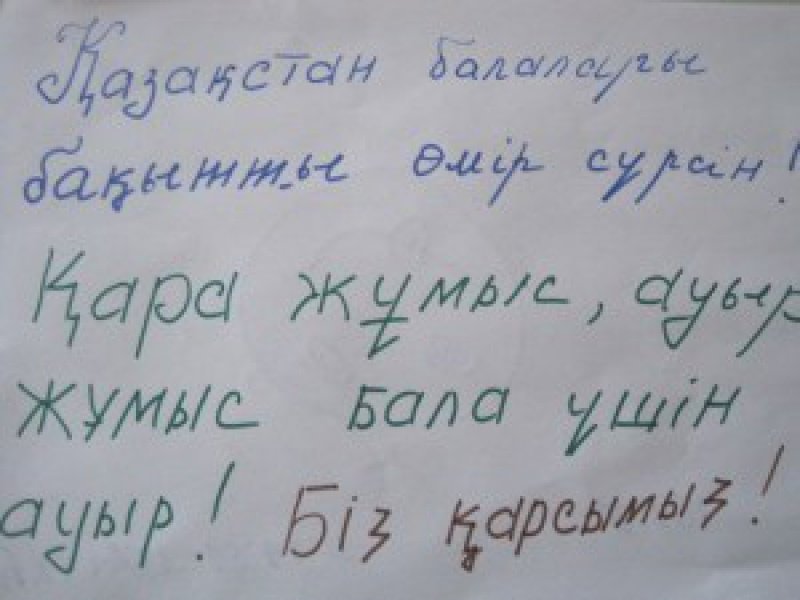 Қазақстан балалары
бақытты өмір сүрсін!
Қара жұмыс, ауыр
жұмыс бала үшін
ауыр! Біз қарсымыз!